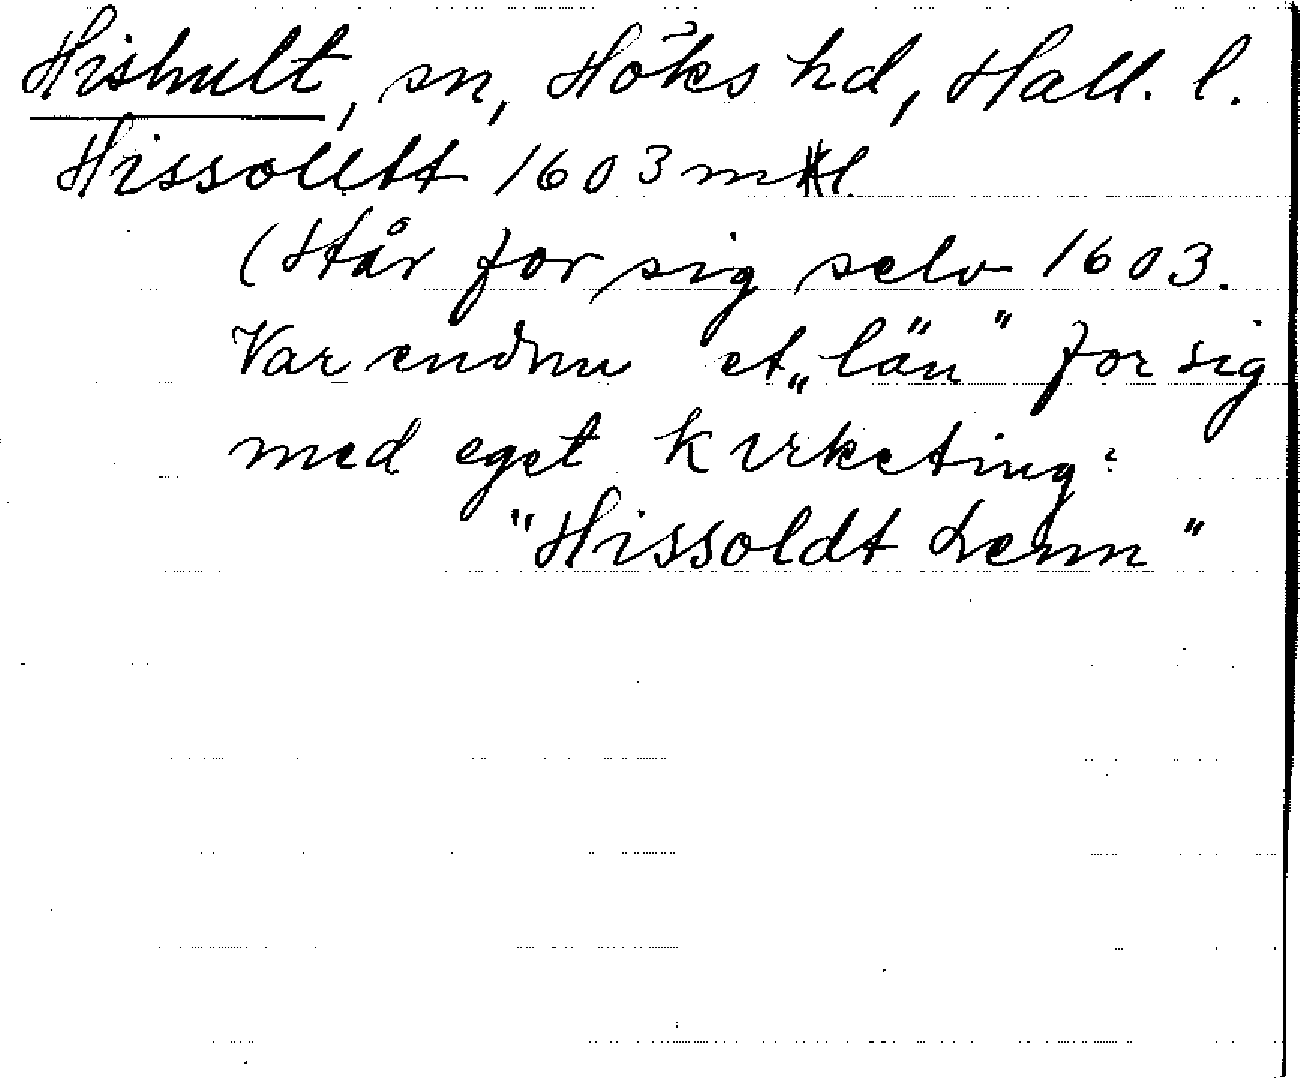 Hishult, sn, Höks hd, Hall. l.
Hissolltt 1603 mtl.
(Står for sig selv 1603.
Var endnu et „län" for sig
med eget Kirketing:
"Hissoldt Lenn"